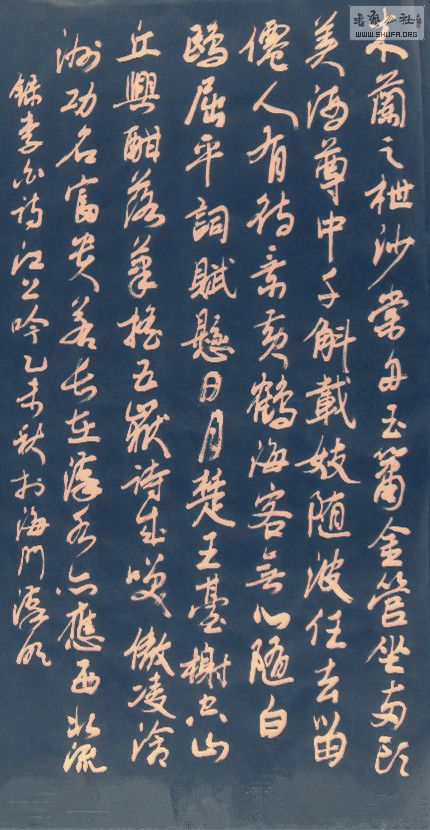 書藝公社
WWW.SHUFA.ORG
木蘭之枻沙棠舟玉簫金管坐兩頭
美酒尊中千斛載妓随波任去留
僊人有待乘黃鶴海客無心随白
鷗屈平詞賦懸日月楚王臺榭空山
丘興酣落筆搖五嶽詩成笑傲凌滄
洲功名富貴若長在漢水亦應西北流
錄李白詩江上吟乙未秋於海門